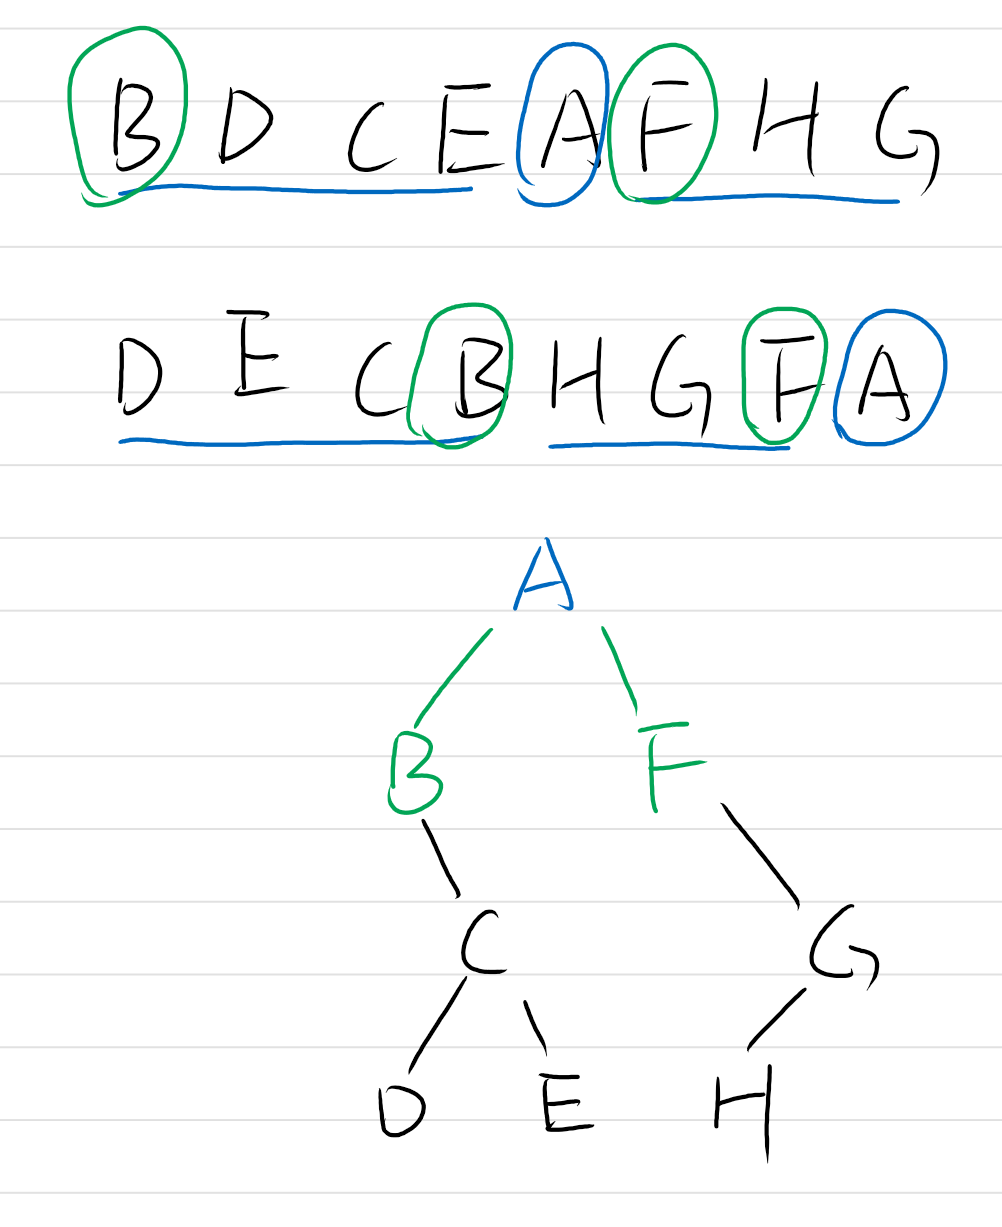 B D C E A F H G
D E C B H G F A
A
B F
C G
D E H